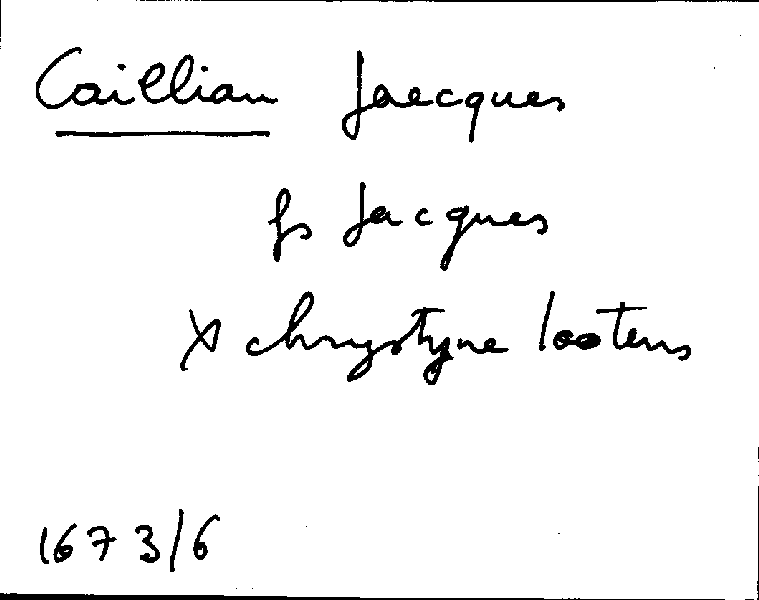 Caillian Jaecques
fs Jacques
x chrystyne lootens
1673/6